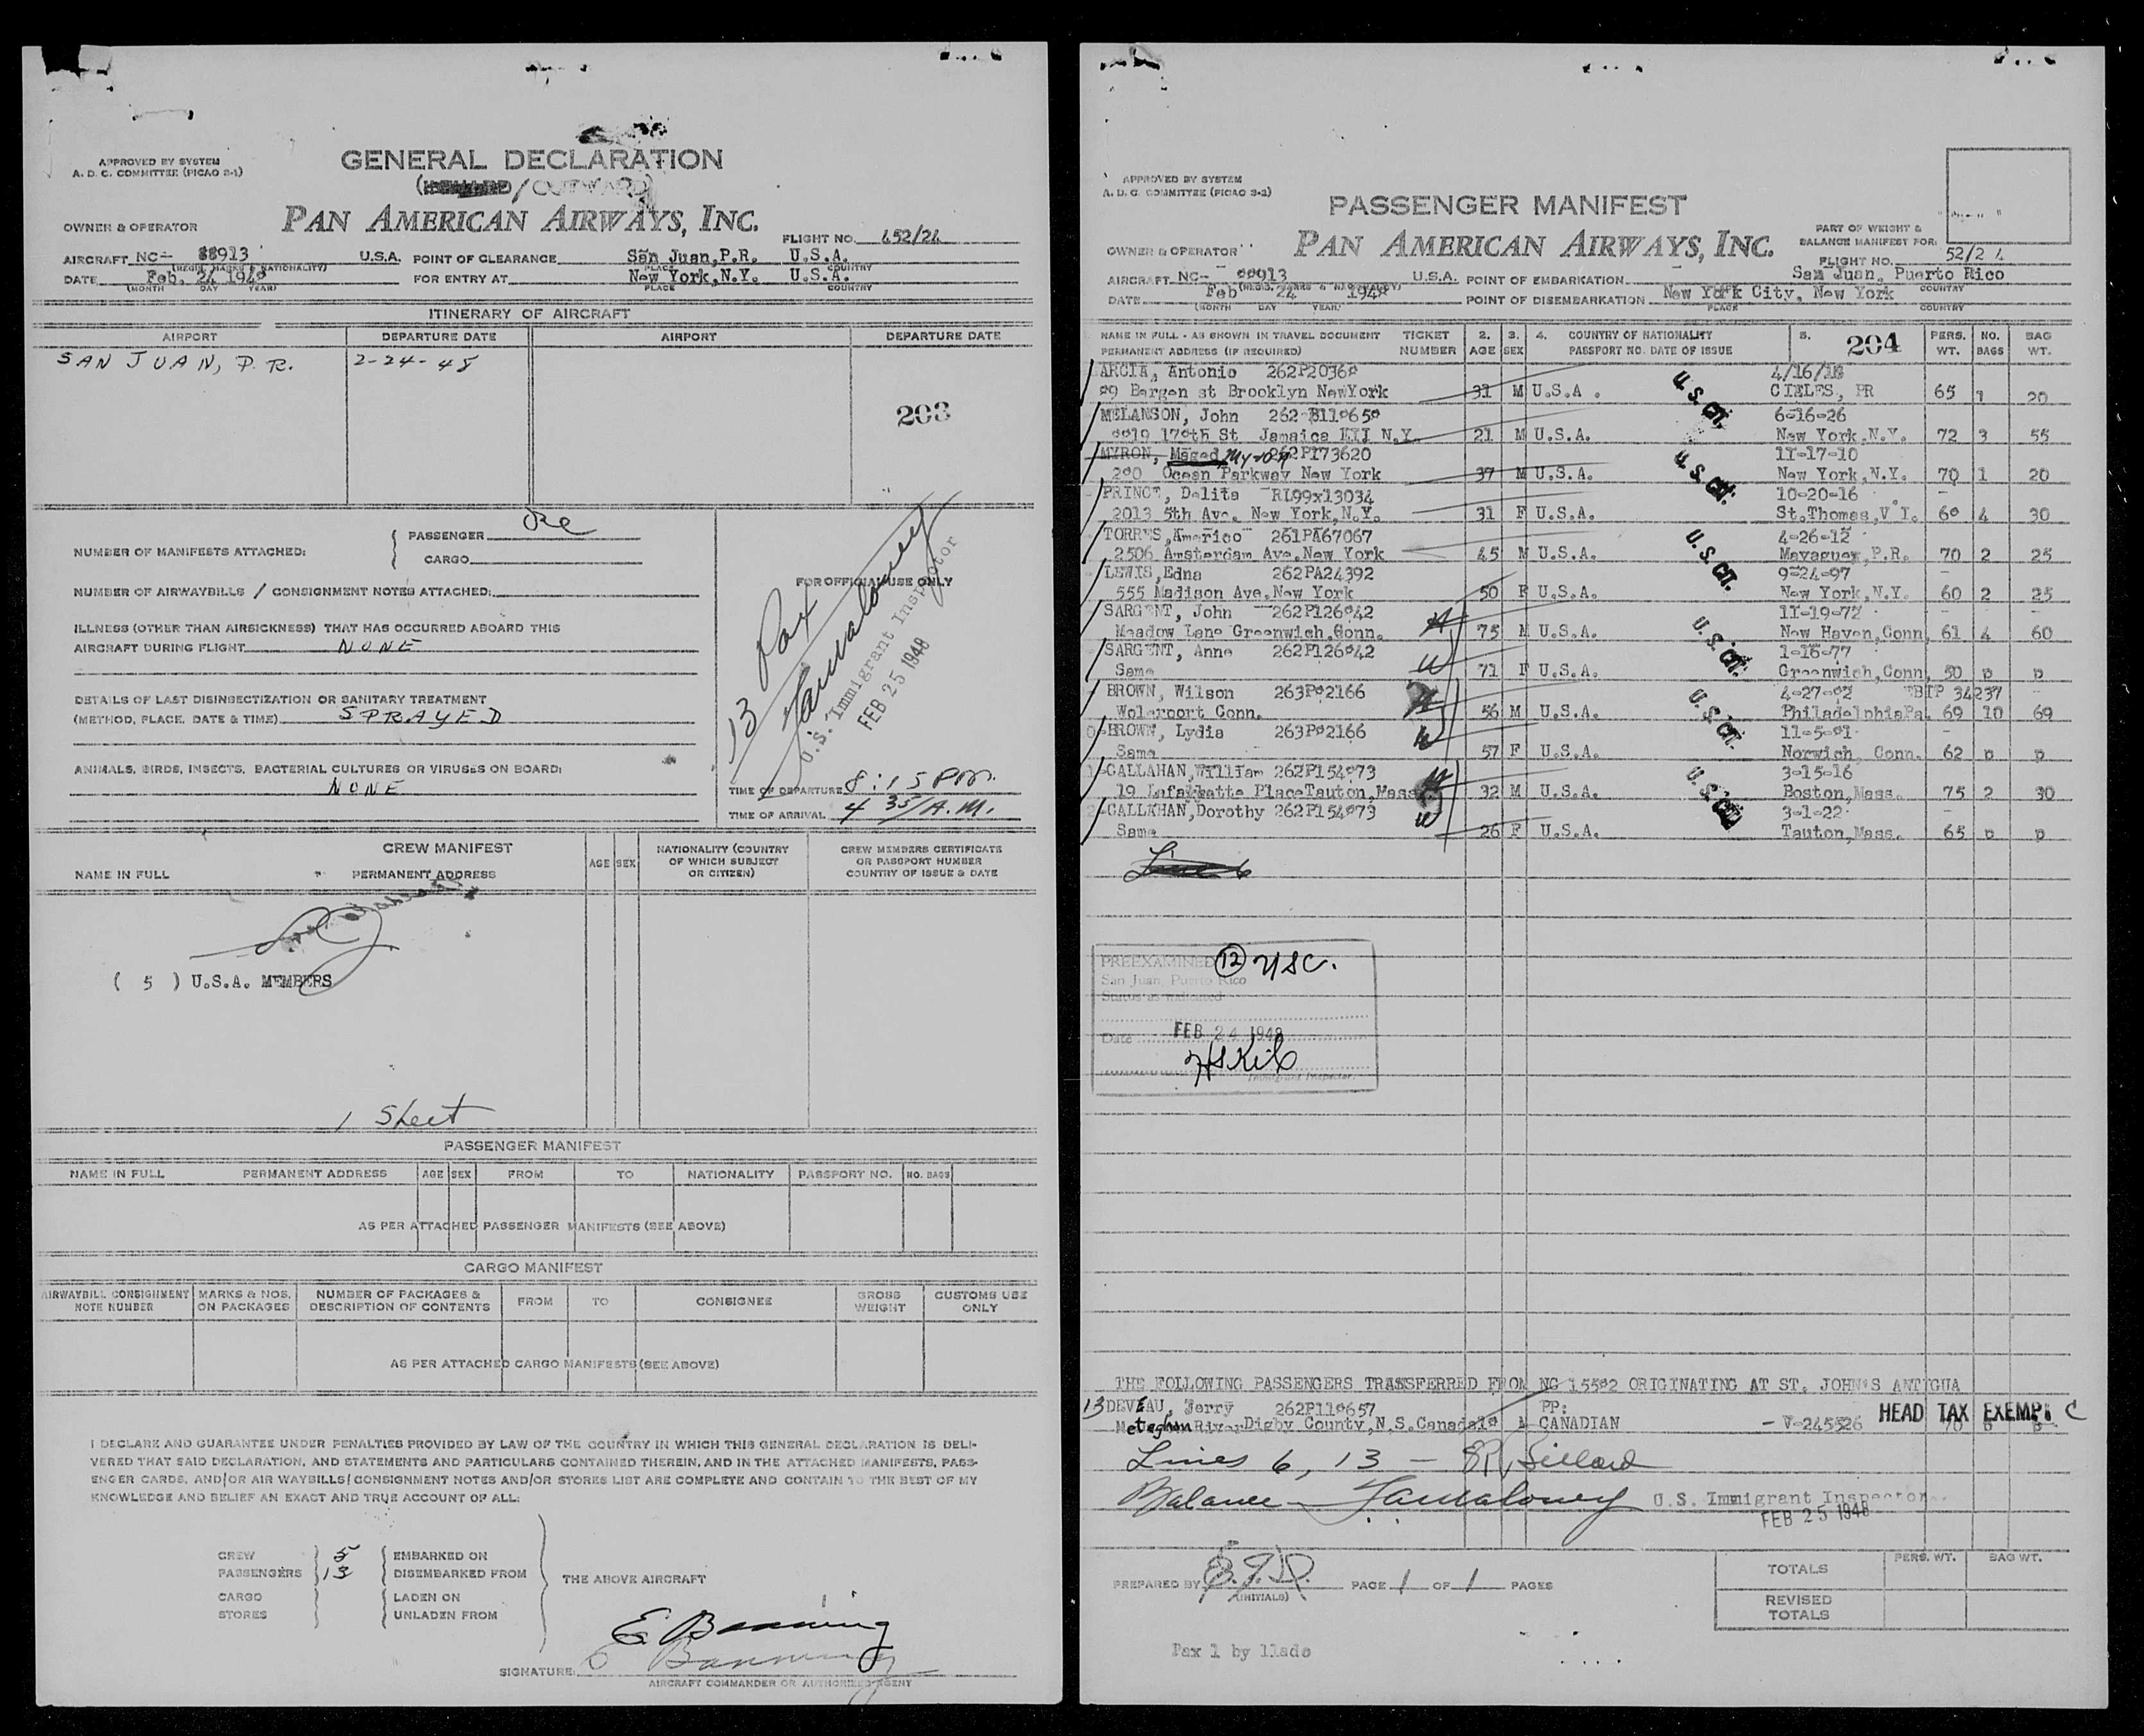 APPROVED BY SYSTEM
A. D. C. COMMITTEE (PICAO 2-1)
GENERAL DECLARATION
(/ OUTWARD)
OWNER & OPERATOR
PAN AMERICAN AIRWAYS, INC.
FLIGHT NO. 452/24
AIRCRAFT NC- 88913 U.S.A. POINT OF CLEARANCE San Juan,P.R. U.S.A.
(REGIS. MARKS & NATIONALITY) PLACE COUNTRY
DATE Feb. 24 1948 FOR ENTRY AT New York,N.Y. U.S.A.
(MONTH DAY YEAR) PLACE COUNTRY
ITINERARY OF AIRCRAFT
AIRPORT DEPARTURE DATE AIRPORT DEPARTURE DATE
SAN JUAN, P.R. 2-24-48
203
NUMBER OF MANIFESTS ATTACHED: PASSENGER One
CARGO
NUMBER OF AIRWAYBILLS / CONSIGNMENT NOTES ATTACHED:
ILLNESS (OTHER THAN AIRSICKNESS) THAT HAS OCCURRED ABOARD THIS
AIRCRAFT DURING FLIGHT NONE
DETAILS OF LAST DISINSECTIZATION OR SANITARY TREATMENT
(METHOD, PLACE, DATE & TIME) SPRAYED
ANIMALS, BIRDS, INSECTS, BACTERIAL CULTURES OR VIRUSES ON BOARD:
NONE
FOR OFFICIAL USE ONLY
13 Pax
U.S. Immigrant Inspector
FEB 25 1948
TIME OF DEPARTURE 8:15 PM.
TIME OF ARRIVAL 4 35/A.M.
CREW MANIFEST
NAME IN FULL PERMANENT ADDRESS
AGE SEX
NATIONALITY (COUNTRY
OF WHICH SUBJECT
OR CITIZEN)
CREW MEMBERS CERTIFICATE
OR PASSPORT NUMBER
COUNTRY OF ISSUE & DATE
( 5 ) U.S.A. MEMBERS
1 Sheet
PASSENGER MANIFEST
NAME IN FULL PERMANENT ADDRESS AGE SEX FROM TO NATIONALITY PASSPORT NO. NO. BAGS
AS PER ATTACHED PASSENGER MANIFESTS (SEE ABOVE)
CARGO MANIFEST
AIRWAYBILL CONSIGNMENT
NOTE NUMBER
MARKS & NOS.
ON PACKAGES
NUMBER OF PACKAGES &
DESCRIPTION OF CONTENTS
FROM TO CONSIGNEE
GROSS
WEIGHT
CUSTOMS USE
ONLY
AS PER ATTACHED CARGO MANIFESTS (SEE ABOVE)
I DECLARE AND GUARANTEE UNDER PENALTIES PROVIDED BY LAW OF THE COUNTRY IN WHICH THIS GENERAL DECLARATION IS DELI-
VERED THAT SAID DECLARATION, AND STATEMENTS AND PARTICULARS CONTAINED THEREIN, AND IN THE ATTACHED MANIFESTS, PASS-
ENGER CARDS, AND/OR AIR WAYBILLS/CONSIGNMENT NOTES AND/OR STORES LIST ARE COMPLETE AND CONTAIN TO THE BEST OF MY
KNOWLEDGE AND BELIEF AN EXACT AND TRUE ACCOUNT OF ALL:
CREW 5 EMBARKED ON
PASSENGERS 13 DISEMBARKED FROM
THE ABOVE AIRCRAFT
CARGO LADEN ON
STORES UNLADEN FROM
E. Banning
SIGNATURE: E Banning
AIRCRAFT COMMANDER OR AUTHORIZED AGENT
APPROVED BY SYSTEM
A. D. C. COMMITTEE (PICAO 2-2)
PASSENGER MANIFEST
OWNER & OPERATOR
PAN AMERICAN AIRWAYS, INC.
PART OF WEIGHT &
BALANCE MANIFEST FOR:
FLIGHT NO. 52/24
AIRCRAFT NC- 88913 U.S.A. POINT OF EMBARKATION San Juan, Puerto Rico
DATE Feb 24 1948 POINT OF DISEMBARKATION New York City, New York
(MONTH DAY YEAR) PLACE COUNTRY
NAME IN FULL - AS SHOWN IN TRAVEL DOCUMENT TICKET 2. 3. 4. COUNTRY OF NATIONALITY 5. 204 PERS. NO. BAG
PERMANENT ADDRESS (IF REQUIRED) NUMBER AGE SEX PASSPORT NO. DATE OF ISSUE WT. BAGS WT.
ARCIA, Antonio 262P20368 4/16/
89 Bergen st Brooklyn NewYork 31 M U.S.A. CIALES, PR 65 1 20
U.S. CIT.
MELANSON, John 262 P110650 6-16-26
8819 178th St Jamaica N.Y. 21 M U.S.A. New York,N.Y. 72 3 55
MYRON, Maged Myron 262P173620 11-17-10
200 Ocean Parkway New York 37 M U.S.A. New York,N.Y. 70 1 20
U.S. CIT.
PRINCE, Delita RL99x13034 10-20-16
2013 5th Ave. New York,N.Y. 31 F U.S.A. St.Thomas,V I. 60 4 30
TORRES,Americo 261PA67067 4-26-12
2506 Amsterdam Ave.New York 45 M U.S.A. Mayaguez,P.R. 70 2 25
U.S. CIT.
LEWIS,Edna 262PA24392 9-24-97
555 Madison Ave.New York 50 F U.S.A. New York,N.Y. 60 2 25
SARGENT, John 262P126042 11-19-72
Meadow Lane Greenwich,Conn. 75 M U.S.A. New Haven,Conn 61 4 60
U.S. CIT.
SARGENT, Anne 262P126042 1-16-77
Same 71 F U.S.A. Greenwich,Conn 50 p p
BROWN, Wilson 263P02166 4-27-92 34237
Wolcroort Conn. 56 M U.S.A. PhiladelphiaPa. 69 10 69
U.S. CIT.
BROWN, Lydia 263P02166 11-5-91
Same 57 F U.S.A. Norwich, Conn. 62 p p
CALLAHAN,William 262P154073 3-15-16
19 Lafayette PlaceTauton,Mass 32 M U.S.A. Boston,Mass. 75 2 30
U.S. CIT.
CALLAHAN,Dorothy 262P154073 3-1-22
Same 26 F U.S.A. Tauton,Mass. 65 p p
PREEXAMINED 12 USC.
San Juan, Puerto Rico
Status as indicated
Date FEB 24 1948
Immigrant Inspector
THE FOLLOWING PASSENGERS TRANSFERRED FROM NC 15582 ORIGINATING AT ST. JOHN'S ANTIGUA
13 DEVEAU, Jerry 262P110657 PP: HEAD TAX EXEMPT C
Meteghan River Digby County,N.S.Canada CANADIAN - V-245526 70
Lines 6, 13 -
Balance - U.S. Immigrant Inspector
FEB 25 1948
PREPARED BY PAGE 1 OF 1 PAGES
(INITIALS)
PERS. WT. BAG WT.
TOTALS
REVISED
TOTALS
Pax 1 by llado